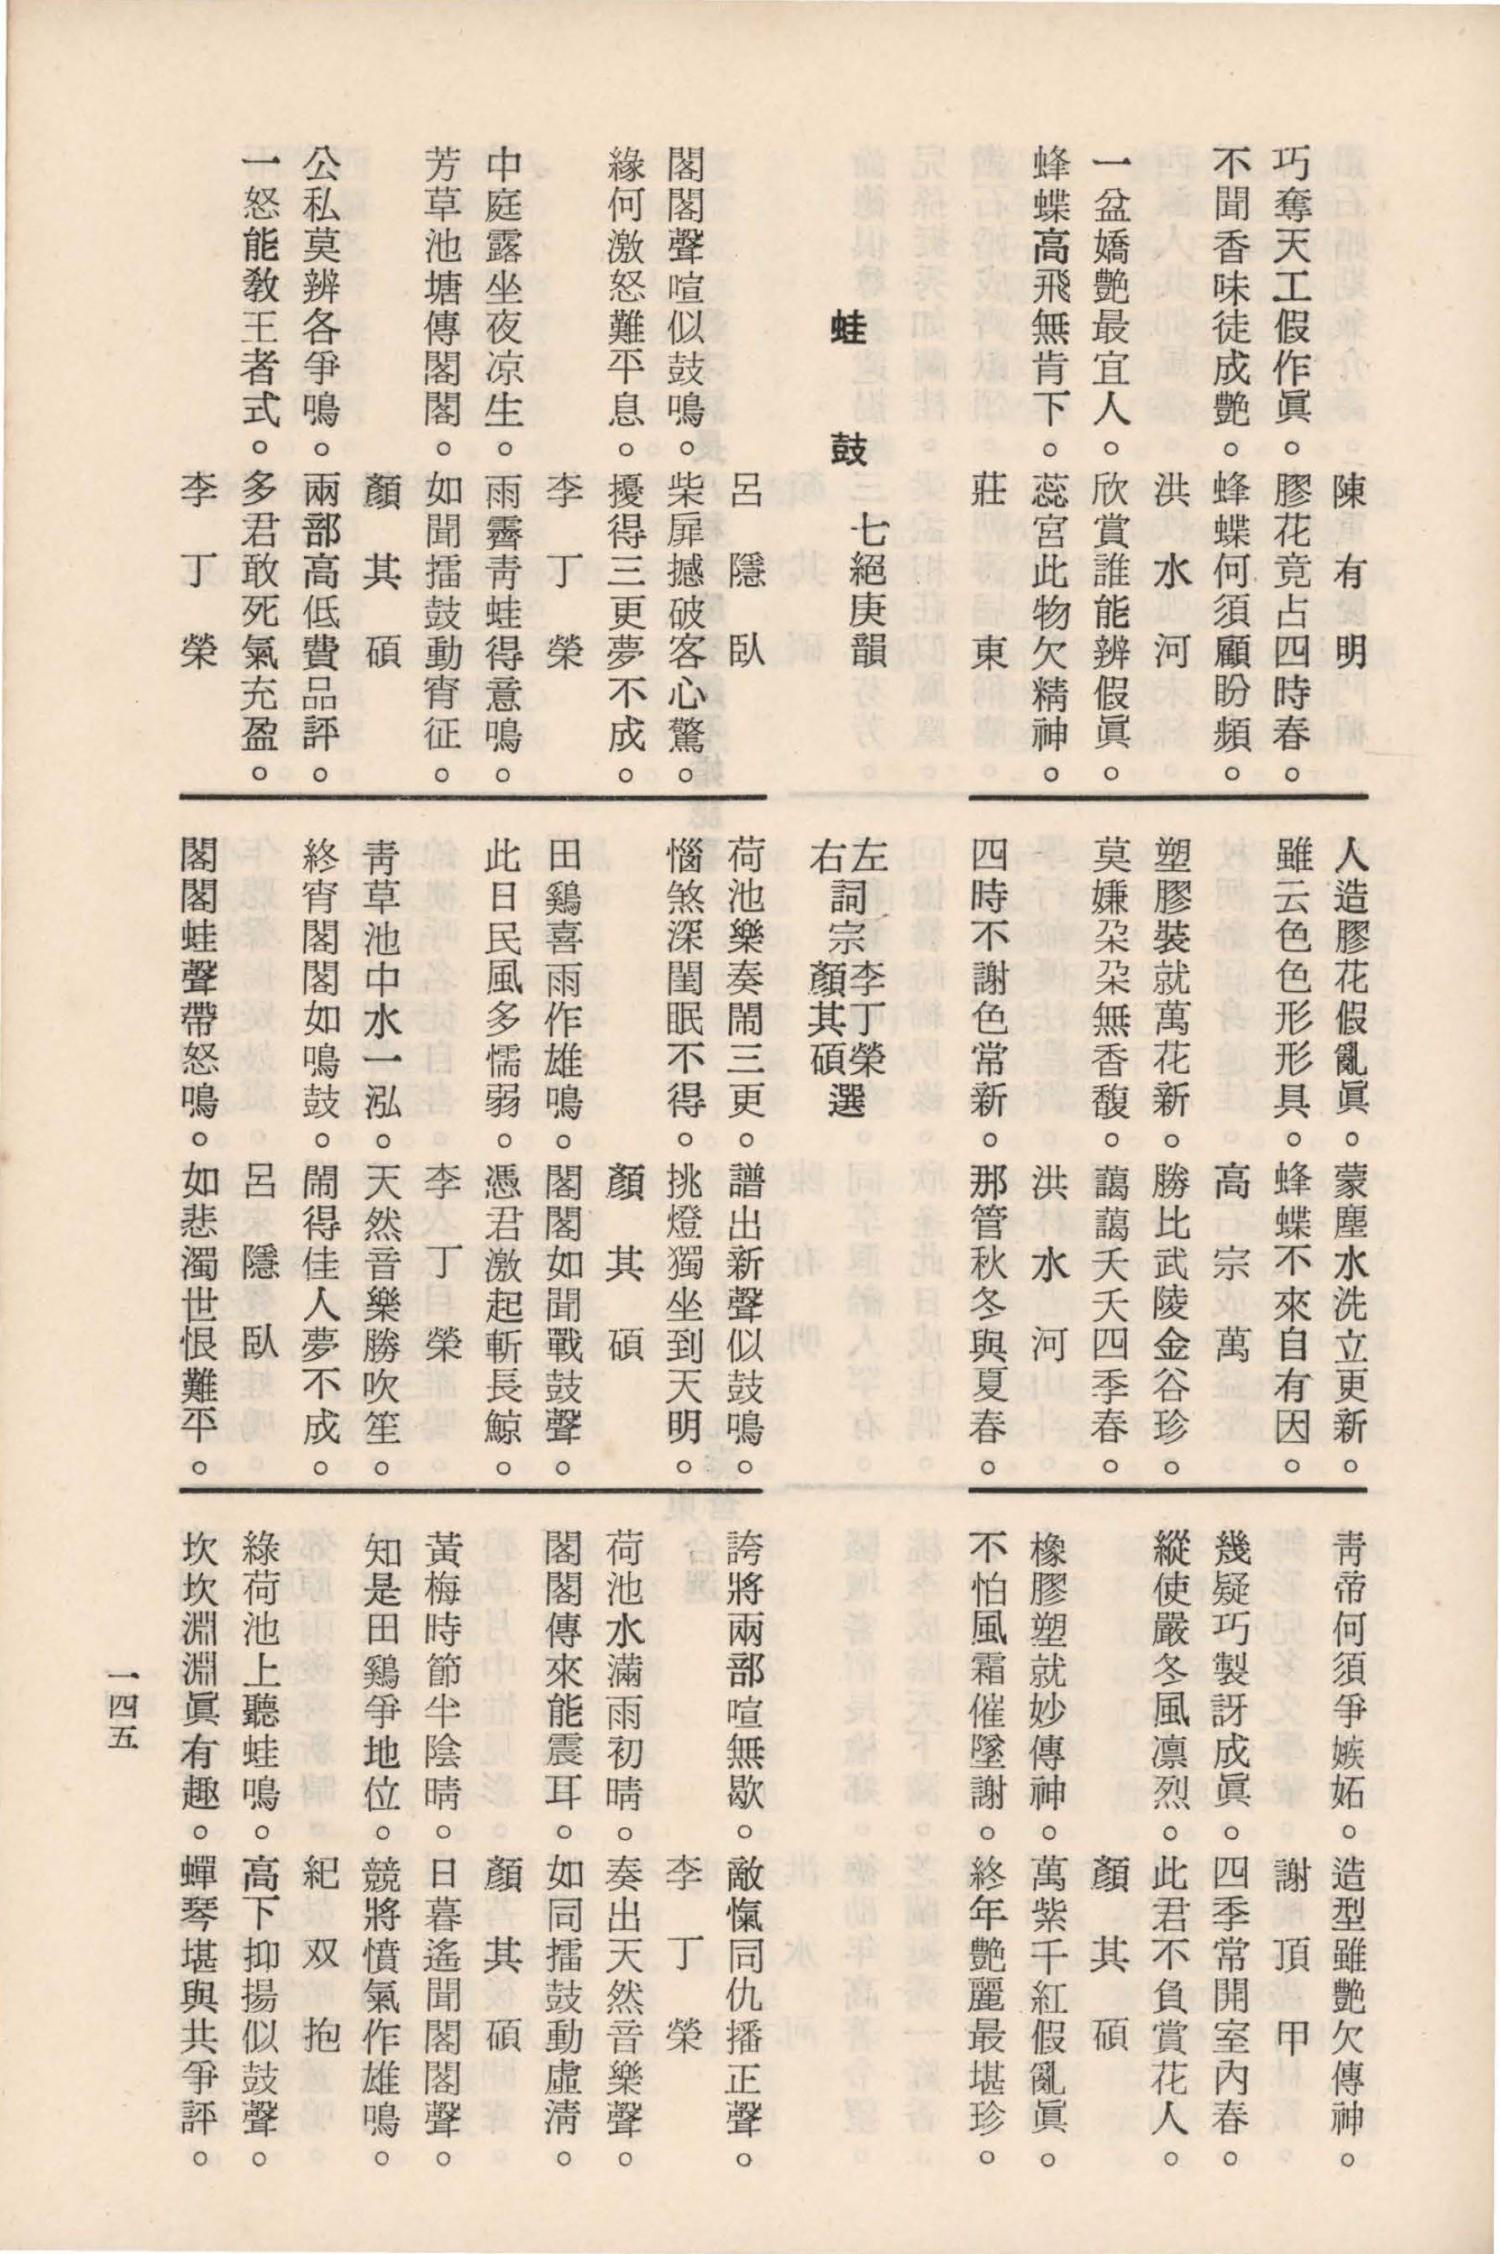 陳有明
巧奪天工假作眞。膠花竟占四時春。
不聞香味徒成艷。蜂蝶何須顧盼頻。
洪水河
一盆嬌艷最宜人。欣賞誰能辨假眞。
蜂蝶高飛無肯下。蕊宮此物欠精神。
莊東
人造膠花假亂眞。蒙塵水洗立更新。
雖云色色形形具。蜂蝶不來自有因。
高宗萬
塑膠裝就萬花新。勝比武陵金谷珍。
莫嫌朶朶無香馥。藹藹夭夭四季春。
洪水河
四時不謝色常新。那管秋冬與夏春。
靑帝何須爭嫉妬。造型雖艷欠傳神。
謝頂甲
幾疑巧製訝成眞。四季常開室內春。
縱使嚴冬風凛烈。此君不負賞花人。
顏其碩
橡膠塑就妙傳神。萬紫千紅假亂眞。
不怕風霜催墜謝。終年艷麗最堪珍。
蛙鼓 七絕庚韻
左右詞宗李丁榮顏其碩選
呂隱臥
閣閣聲喧似鼓鳴。柴扉撼破客心驚。
緣何激怒難平息。擾得三更夢不成。
李丁榮
中庭露坐夜凉生。雨霽靑蛙得意鳴。
芳草池塘傳閣閣。如聞擂鼓動宵征。
顏其碩
公私莫辨各爭鳴。兩部高低費品評。
一怒能敎王者式。多君敢死氣充盈。
李丁榮
荷池樂奏鬧三更。譜出新聲似鼓鳴。
惱煞深閨眠不得。挑燈獨坐到天明。
顏其碩
田鷄喜雨作雄鳴。閣閣如聞戰鼓聲。
此日民風多懦弱。憑君激起斬長鯨。
李丁榮
靑草池中水一泓。天然音樂勝吹笙。
終宵閣閣如鳴鼓。鬧得佳人夢不成。
呂隱臥
閣閣蛙聲帶怒鳴。如悲濁世恨難平。
誇將兩部喧無歇。敵愾同仇播正聲。
李丁榮
荷池水滿雨初晴。奏出天然音樂聲。
閣閣傳來能震耳。如同擂鼓動虛淸。
顏其碩
黃梅時節半陰晴。日暮遙聞閣閣聲。
知是田鷄爭地位。競將憤氣作雄鳴。
紀双抱
綠荷池上聽蛙鳴。高下抑揚似鼓聲。
坎坎淵淵眞有趣。蟬琴堪與共爭評。
一四五